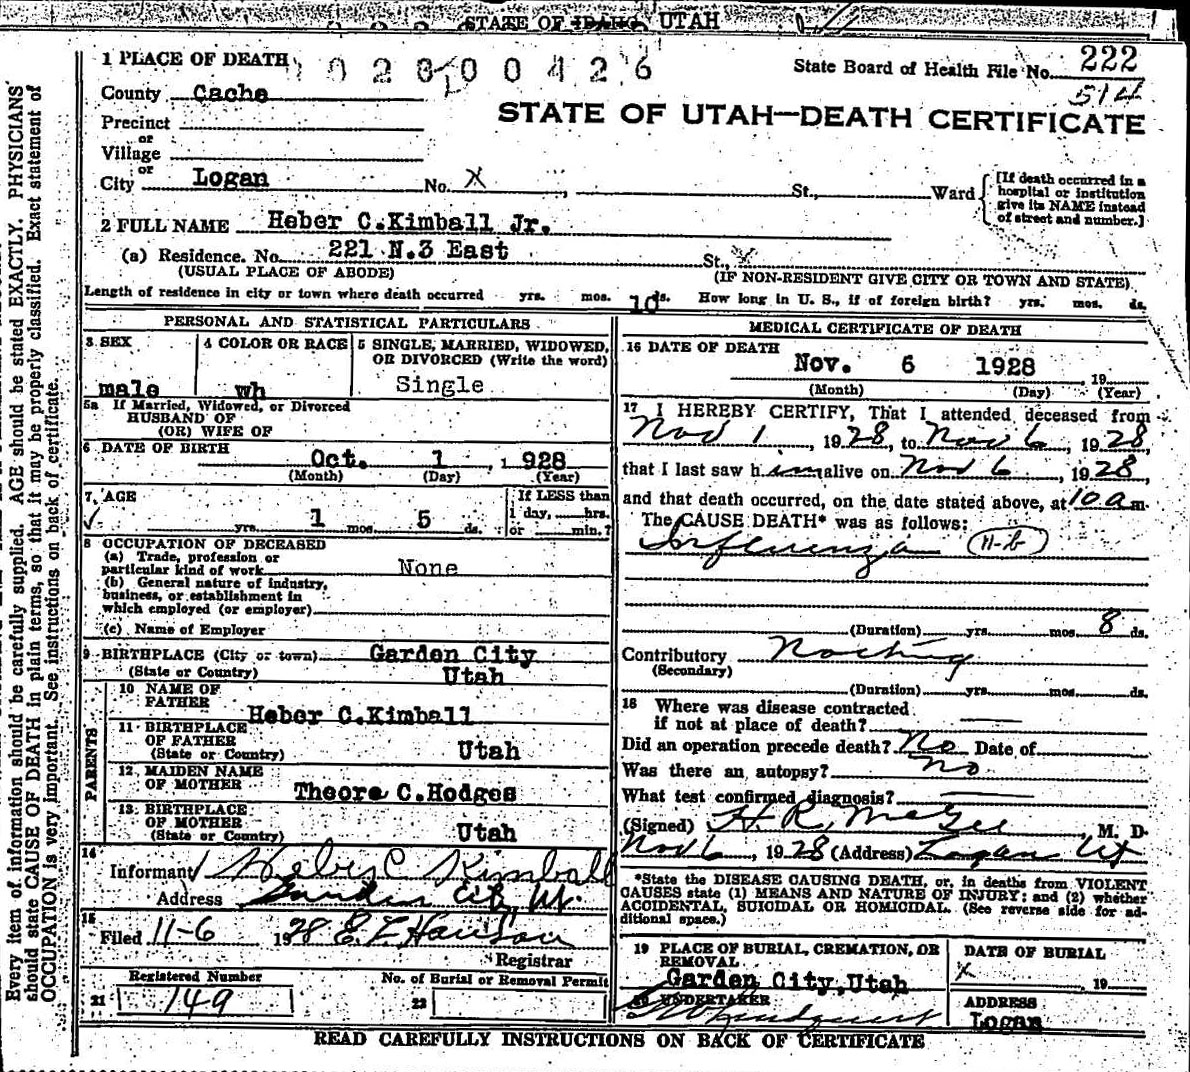 STATE OF IDAHO UTAH
1 PLACE OF DEATH
State Board of Health File No. 222
514
County Cache
STATE OF UTAH—DEATH CERTIFICATE
Precinct
or
Village
or
City Logan No. X , St., Ward
[If death occurred in a hospital or institution give its NAME instead of street and number.]
2 FULL NAME Heber C.Kimball Jr.
(a) Residence. No. 221 N.3 East St., X
(USUAL PLACE OF ABODE) (IF NON-RESIDENT GIVE CITY OR TOWN AND STATE)
Length of residence in city or town where death occurred yrs. mos. 10 ds. How long in U. S., if of foreign birth? yrs. mos. ds.
PERSONAL AND STATISTICAL PARTICULARS
3 SEX
male
4 COLOR OR RACE
wh
5 SINGLE, MARRIED, WIDOWED, OR DIVORCED (Write the word)
Single
5a If Married, Widowed, or Divorced
HUSBAND OF
(OR) WIFE OF
6 DATE OF BIRTH
Oct. 1 , 1 928
(Month) (Day) (Year)
7 AGE
yrs. 1 mos. 5 ds.
If LESS than
1 day, hrs.
or min.?
8 OCCUPATION OF DECEASED
(a) Trade, profession or
particular kind of work None
(b) General nature of industry,
business, or establishment in
which employed (or employer)
(c) Name of Employer
9 BIRTHPLACE (City or town) Garden City
(State or Country) Utah
PARENTS
10 NAME OF
FATHER
Heber C.Kimball
11 BIRTHPLACE
OF FATHER
(State or Country) Utah
12 MAIDEN NAME
OF MOTHER
Theore C.Hodges
13 BIRTHPLACE
OF MOTHER
(State or Country) Utah
14
Informant Heber C Kimball
Address Garden City Ut.
15
Filed 11-6 1928
Registrar
Registered Number
21 149
No. of Burial or Removal Permit
22
MEDICAL CERTIFICATE OF DEATH
16 DATE OF DEATH
Nov. 6 1928 , 19
(Month) (Day) (Year)
17 I HEREBY CERTIFY, That I attended deceased from
Nov 1 , 1928, to Nov 6 , 1928,
that I last saw him alive on Nov 6 , 1928,
and that death occurred, on the date stated above, at 10 a m.
The CAUSE DEATH* was as follows:
Influenza (11-b)
(Duration) yrs. mos. 8 ds.
Contributory Nothing
(Secondary)
(Duration) yrs. mos. ds.
18 Where was disease contracted
if not at place of death?
Did an operation precede death? No Date of
Was there an autopsy? no
What test confirmed diagnosis?
(Signed) H. R. McGee , M. D.
Nov 6 , 1928 (Address) Logan Ut
*State the DISEASE CAUSING DEATH, or, in deaths from VIOLENT
CAUSES state (1) MEANS AND NATURE OF INJURY; and (2) whether
ACCIDENTAL, SUICIDAL OR HOMICIDAL. (See reverse side for ad-
ditional space.)
19 PLACE OF BURIAL, CREMATION, OR
REMOVAL
Garden City,Utah
DATE OF BURIAL
X , 19
20 UNDERTAKER
ADDRESS
Logan
READ CAREFULLY INSTRUCTIONS ON BACK OF CERTIFICATE
Every item of information should be carefully supplied. AGE should be stated EXACTLY. PHYSICIANS
should state CAUSE OF DEATH in plain terms, so that it may be properly classified. Exact statement of
OCCUPATION is very important. See instructions on back of certificate.